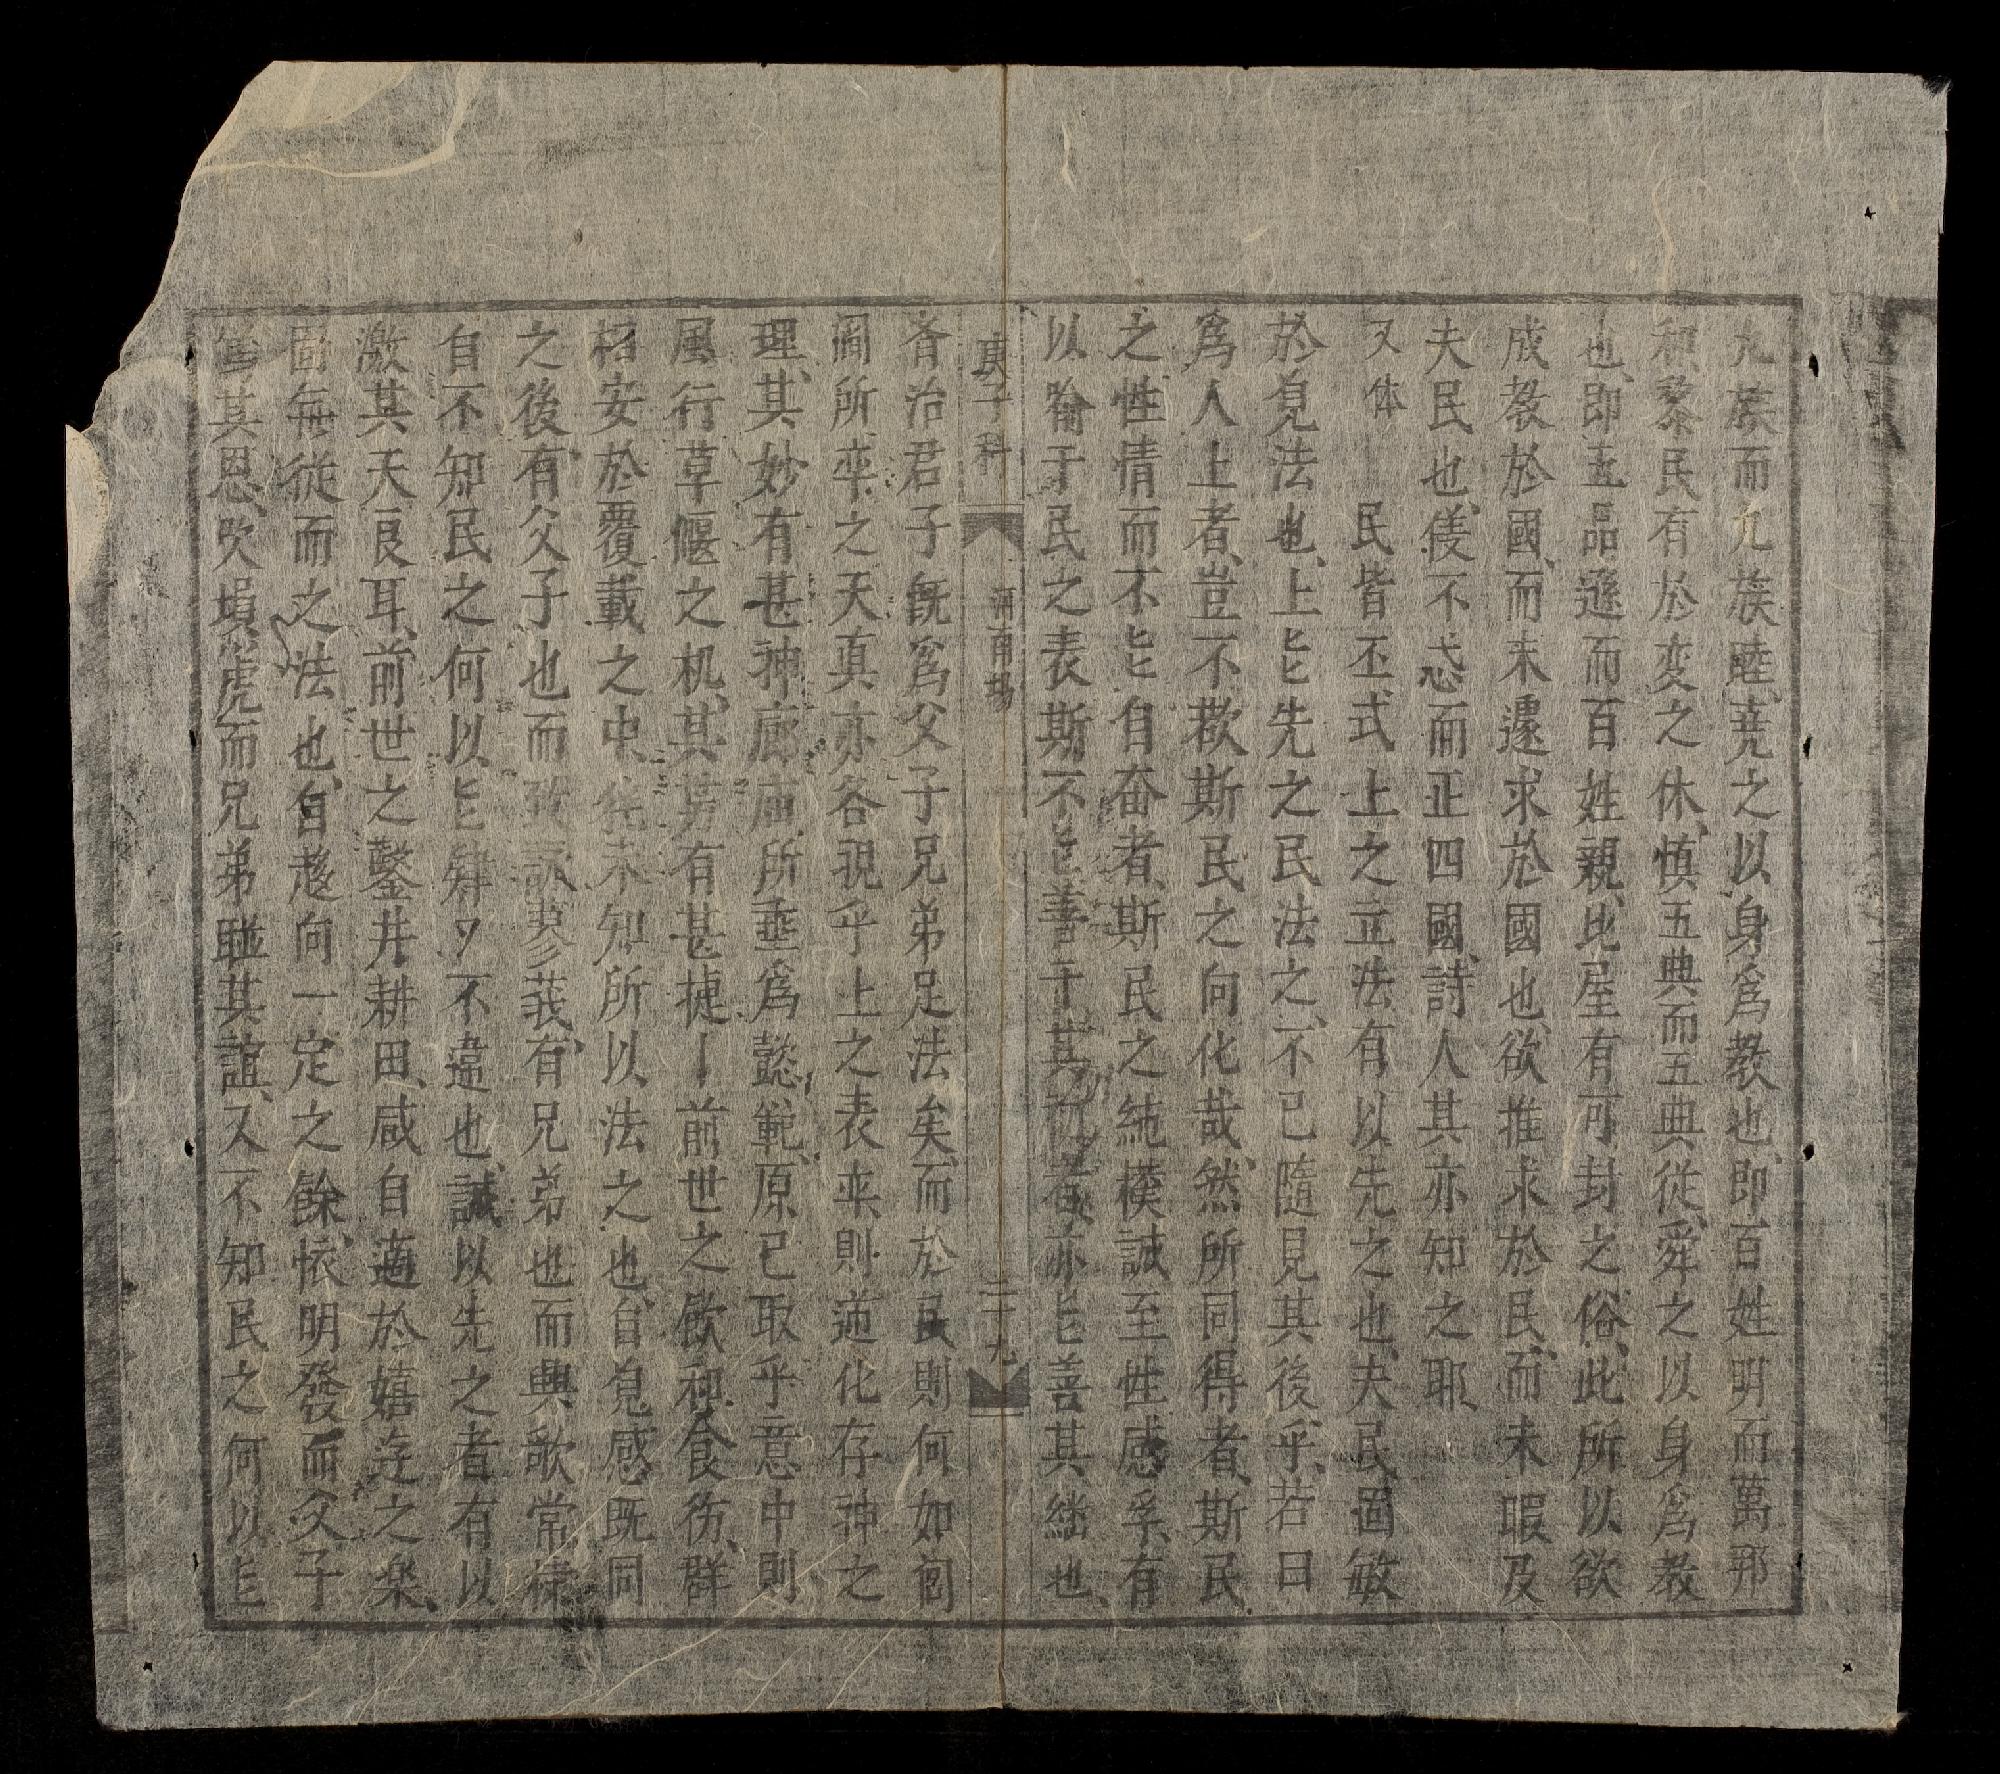 九族而九族睦、尭之以身爲教也、即百姓明而萬邦
和、黎民有於変之休、慎五典而五典従、舜之以身爲教
也、即五品遜而百姓親、比屋有可封之俗、此所以欲
成教於國、而未遽求於國也、欲推求於民、而未暇及
夫民也、儀不忒而正四國、詩人其亦知之耶
又体 民皆丕式上之立法有以先之也、夫民固敏
於見法也、上㠯先之民法之、不已隨見其後乎、若曰
爲人上者、豈不歡斯民之向化哉、然所同得者、斯民
之性情而不㠯自奋者、斯民之純樸誠至性感孚、有
以喻于民之表斯不㠯善于其初者亦㠯善其継也、
庚子科 河南場 二十九
斉治君子既爲父子兄弟足法矣、而於民則何如閭
閻所率之天真亦各視乎上之表来則道化存神之
理、其妙有甚神廊庙所垂爲懿範、原已取乎意中則
風行草偃之机、其勢有甚捷丨前世之飲和食徳、群
相安於覆載之中、未知所以法之也、自覚感既同
之後、有父子也而致詠蓼莪、有兄弟也而興歌常棣
自不知民之何以㠯肆夕不違也、誠以先之者有以
激其天良耳、前世之鑿井耕田、咸自適於嬉遊之楽、
固無従而之法也、自趍向一定之餘、懐明發而父子
篤其恩、吹塤篪而兄弟聮其誼、又不知民之何以㠯